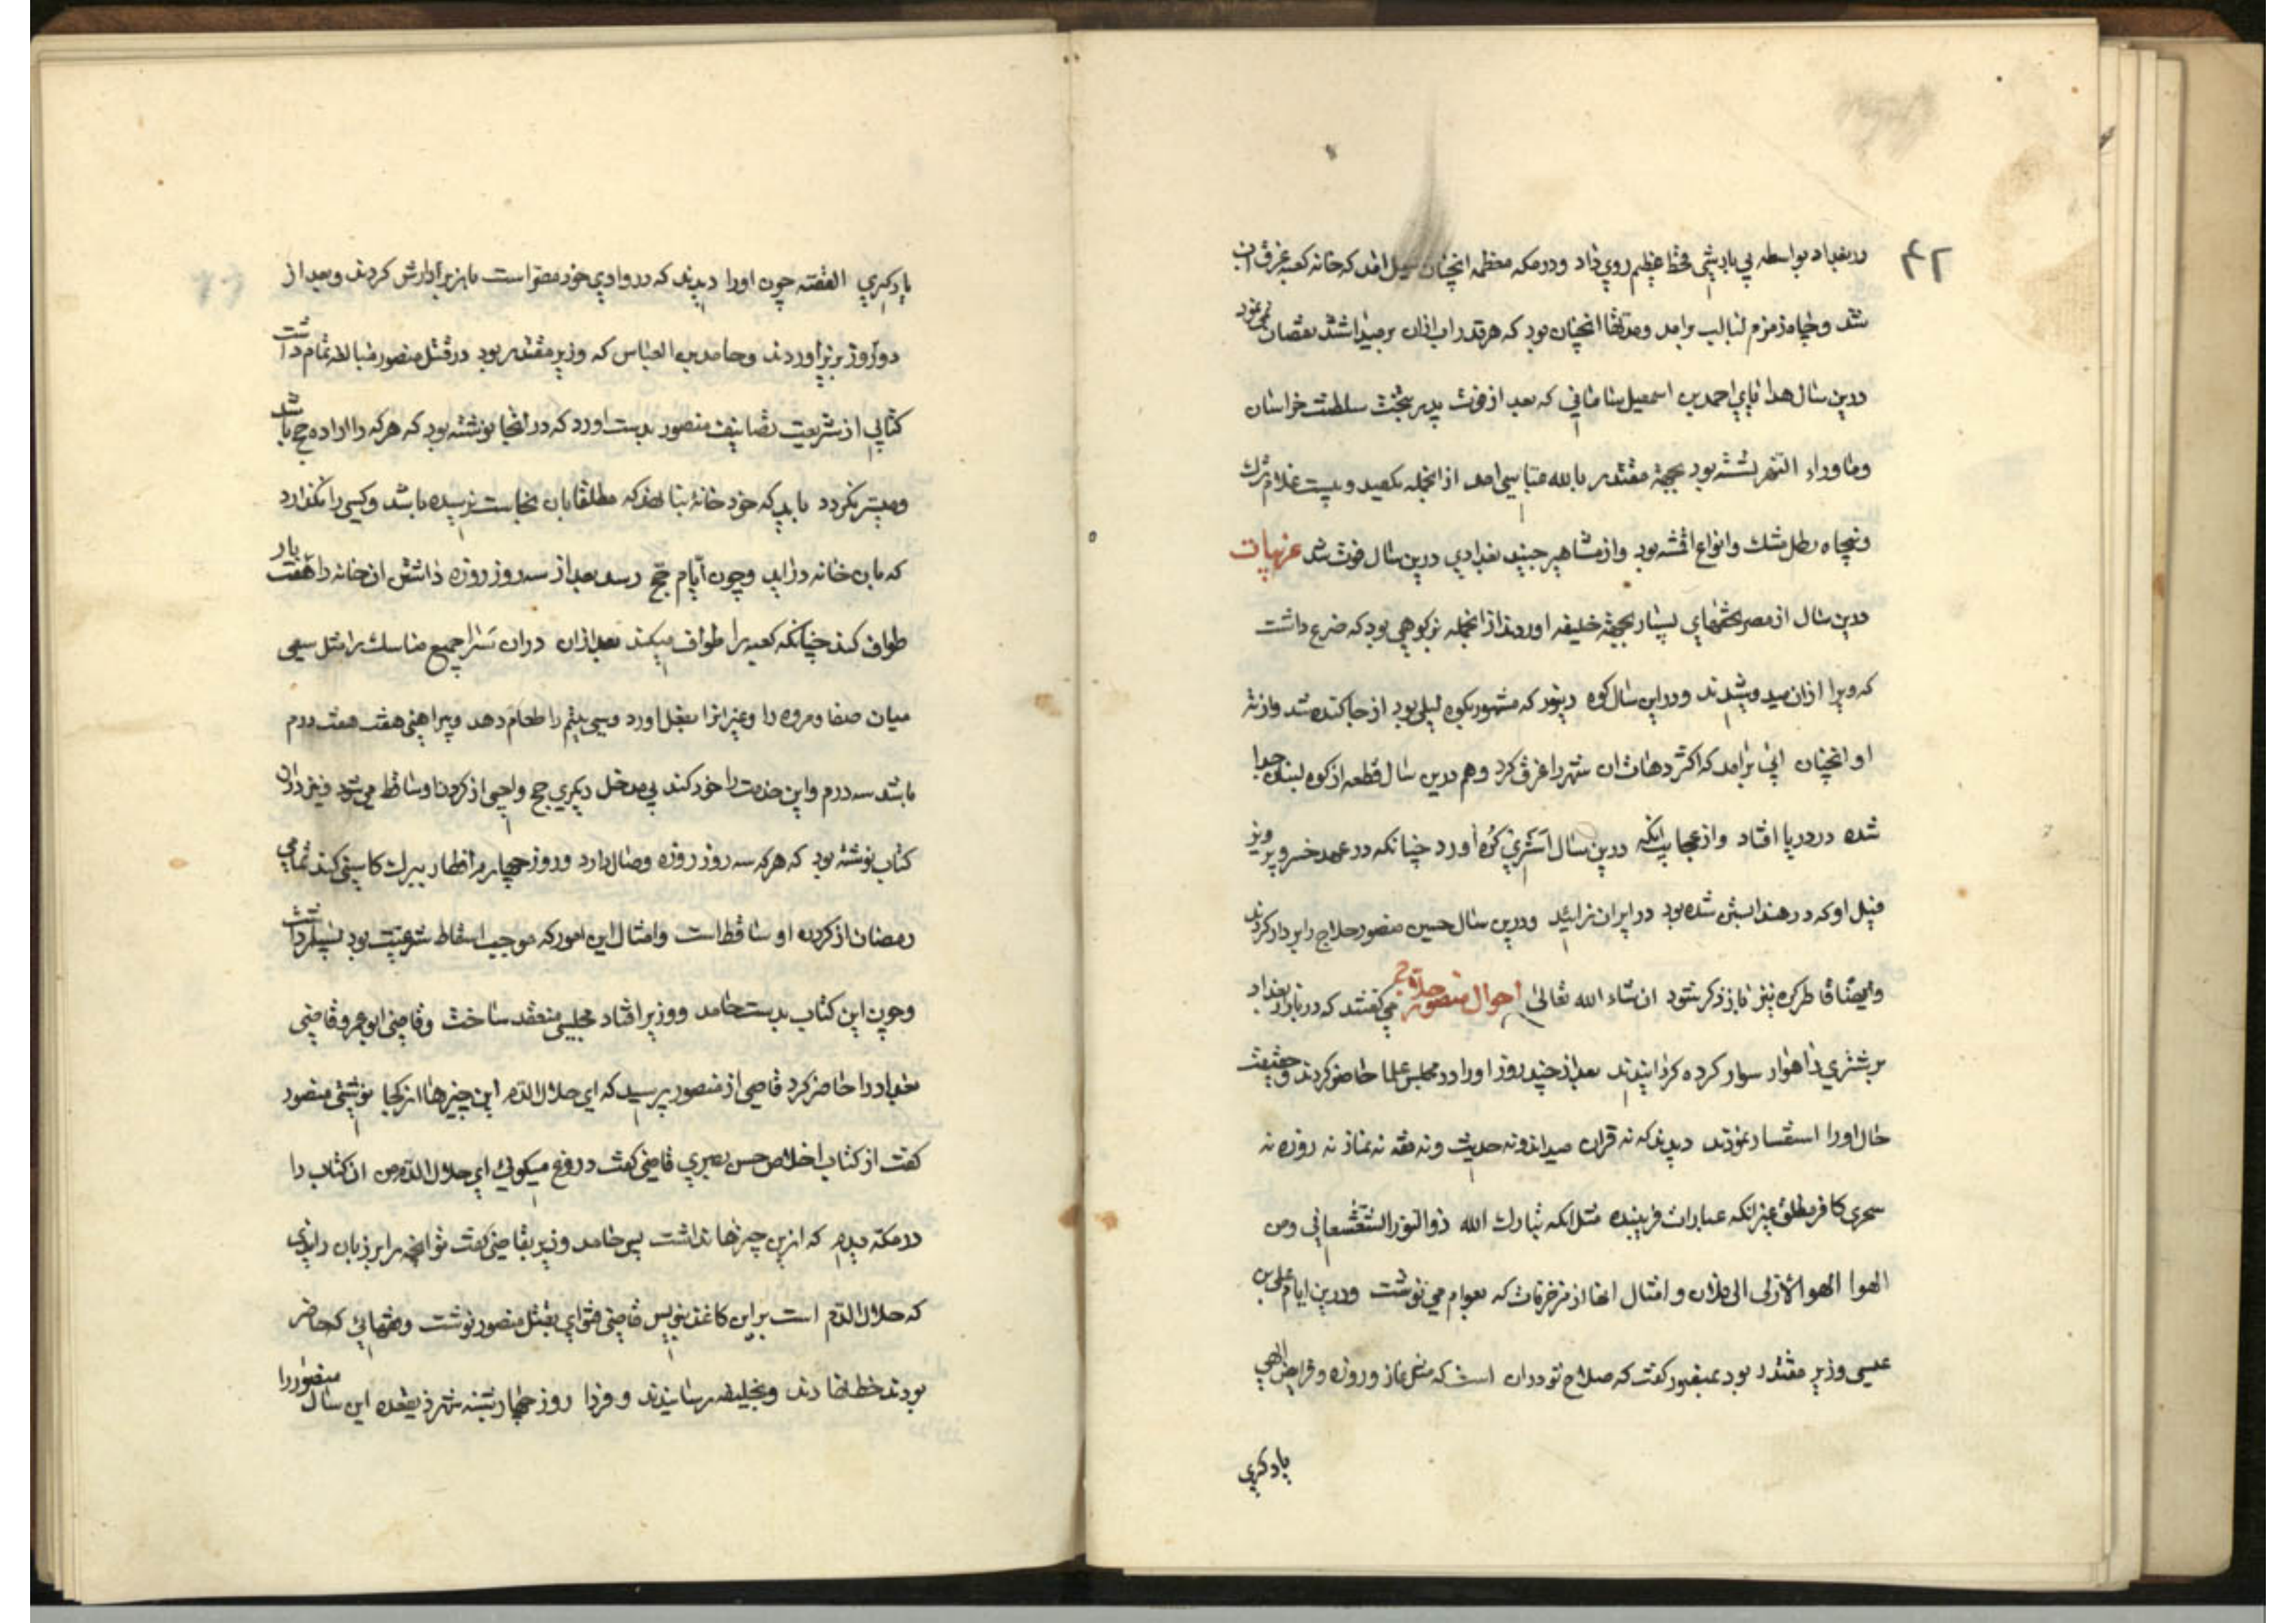 ۴۲
در بغداد بواسطه بی بارشی قحط عظیم روی داد و در مکه معظمه انچنان سیل امد که خانه کعبه غرق اب
شد و چاه زمزم لبالب برامد و مدتها انچنان بود که هر قدر اب ازان برمیداشتند نقصان نمی نمود
درین سال هدایای احمد بن اسمعیل سامانی که بعد از فوت پدر بتخت سلطنت خراسان
و ماوراء النهر نشسته بود بجهة مقتدر بالله عباسی امد از انجمله یکصد و بیست غلام ترک
و پنجاه رطل مشک و انواع اقمشه بود و از مشاهیر جنید بغدادی درین سال فوت شد غریبات
درین سال از مصر تحفهای بسیار بجهة خلیفه اوردند از انجمله بز کوهی بود که ضرع داشت
که ویرا ازان میدوشیدند و در این سال کوه دینور که مشهور بکوه لیلی بود از جا کنده شد و از ته
او انچنان ابی برامد که اکثر دهات ان شهر را غرق کرد و هم درین سال قطعه از کوه لبنان جدا
شده در دریا افتاد و از عجایب انکه درین سال استری کره اورد چنانکه در عهد خسرو پرویز
فیل او که در هند ابستن شده بود در ایران زائید و درین سال حسین منصور حلاج را بر دار کردند
و ایضا قاطر کره نیز باز ذکر شود ان شاء الله تعالی احوال منصور حلاج می گفتند که در بازار بغداد
بر شتری راهوار سوار کرده گردانیدند بعد از چند روز او را در مجلس علما حاضر کردند و حقیقت
حال او را استفسار نمودند دیدند که نه قران میداند و نه حدیث و نه فقه نه نماز نه روزه نه
سحری کافر مطلق غیر انکه عبارات فریبنده مثل انکه تبارک الله ذو النور الشعشعانی و من
الهوا الهو الازلی الی فلان و امثال انها از مزخرفات که بعوام می نوشت و درین ایام علی بن
عیسی وزیر مقتدر بود بمنصور گفت که صلاح تو در ان است که مثل نماز و روزه و فرایض الهی
یاد گیری
یاد گیری القصه چون او را دیدند که در وادی خود مصر است باز بر دارش کردند و بعد از
دو روز بزیر اوردند و حامد بن العباس که وزیر مقتدر بود در قتل منصور مبالغه تمام داشت
کتابی از شریعت تصانیف منصور بدست اورد که در انجا نوشته بود که هر که را اراده حج باشد
و میسر نگردد باید که خود خانه بنا نهد که مطلقا بان نجاست نرسیده باشد و کسی را نگذارد
که بان خانه در اید و چون ایام حج رسد بعد از سه روز روزه داشتن ان خانه را هفت بار
طواف کند چنانکه کعبه را طواف میکند بعد ازان در ان سرا جمیع مناسک را مثل سعی
میان صفا و مروه را و غیر انرا بفعل اورد و سی یتیم را طعام دهد و پیراهنی هفت هفت درم
باشد سه درم و این خدمت را خود کند بی مدخل دیگری حج واجبی از کردن او ساقط می شود و نیز در ان
کتاب نوشته بود که هر که سه روز روزه وصال دارد و روز چهارم افطار ببرک کاسنی کند تمامی
رمضان از کرده او ساقط است و امثال این امور که موجب اسقاط شرعیت بود بسیار داشت
و چون این کتاب بدست حامد وزیر افتاد مجلسی منعقد ساخت و قاضی ابو عمرو قاضی
بغداد را حاضر کرد قاضی از منصور پرسید که ای حلال الدم این چیزها از کجا نوشتی منصور
گفت از کتاب اخلاص حسن بصری قاضی گفت دروغ میگوئی ای حلال الدم من ان کتاب را
در مکه دیدم که ازین چیزها نداشت پس حامد وزیر بقاضی گفت تو انچه را بر زبان راندی
که حلال الدم است بر این کاغذ بنویس قاضی فتوای بقتل منصور نوشت و فقهائی که حاضر
بودند خط نهادند و بخلیفه رسانیدند و فردا روز چهار شنبه شهر ذیقعده این سال منصور را